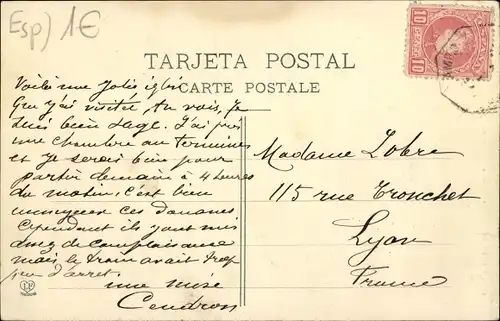 Esp) 1€
10 10
TARJETA POSTAL
CARTE POSTALE
Voilà une jolie église
que j'ai visitée, tu vois, je
suis bien sage. J'ai pris
une chambre au Terminus
et je serais bien pour
partir demain à 4 heures
du matin, c'est bien
ces douanes
Cependant ils y ont mis
de complaisance
mais le train avait trop
peu d'arret.
une mise
Cendron
Madame Lobre
115 rue Tronchet
Lyon
France